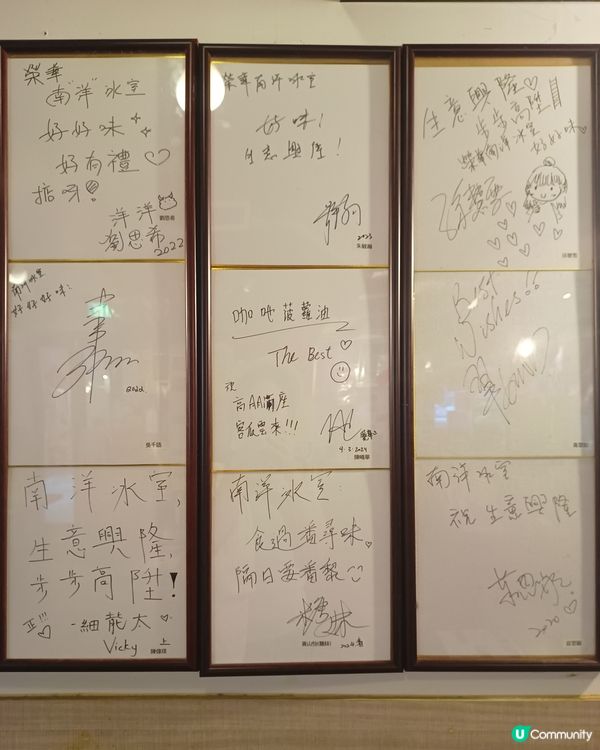 榮華
南"洋"冰室
好好味
好有禮
掂呀!
洋洋
劉思希
2022
劉思希
南洋冰室
好好好味!
2022
吳千語
南洋冰室,
生意興隆,
步步高陞!
細龍太
Vicky 上
陳偉琪
榮華南洋冰室
好味!
生意興隆!
2023
朱敏瀚
咖吔菠蘿油
The Best
祝
高AA滿座
客似雲來!!!
4.2.2024
陳曉華
南洋冰室:
食過番尋味
隔日要番黎
糖妹
2024
黃山怡(糖妹)
生意興隆
步步高陞
榮華南洋冰室
好好味
Best
Wishes!!
南洋冰室
祝生意興隆
2020